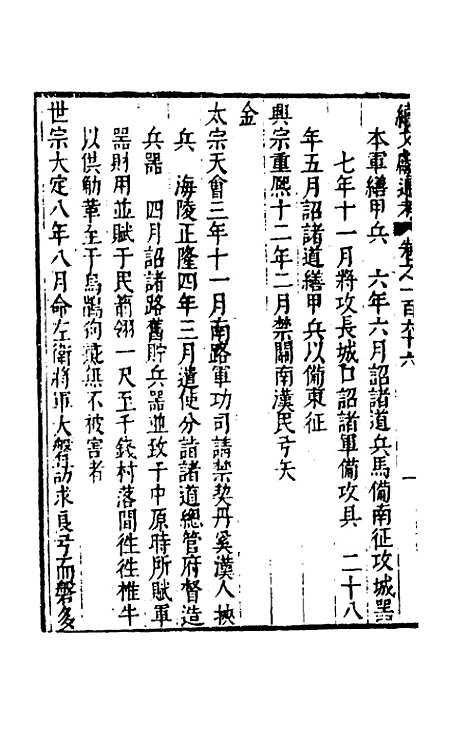 續文獻通考 卷之一百六十六
本軍繕甲兵 六年六月詔諸道兵馬備南征攻城器
七年十一月將攻長城口詔諸軍備攻具 二十八
年五月詔諸道繕甲兵以備東征
興宗重熙十二年二月禁關南漢民弓矢
金
太宗天會三年十一月南路軍功司請禁契丹奚漢人挾
兵 海陵正隆四年三月遣使分詣諸道總管府督造
兵器 四月詔諸路舊貯兵器並致于中原時所賦軍
器財用並賦于民箭翎一尺至千錢村落間徃徃椎牛
以供觔革至于烏鵲狗彘無不被害者
世宗大定八年八月命左衛將軍大磐訪求良弓而磐多